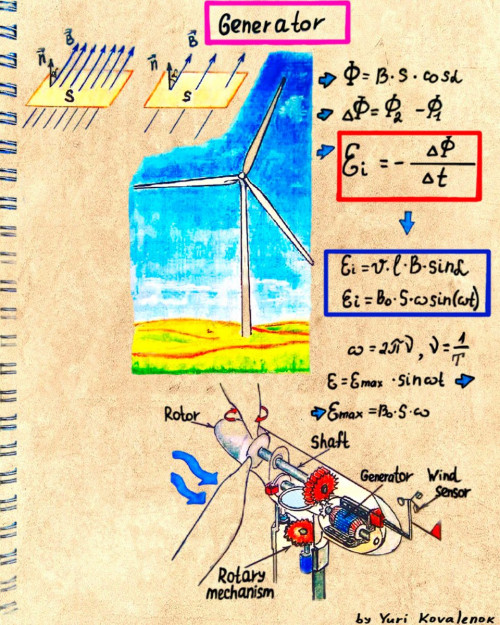 Generator
n⃗ α B⃗
S
n⃗ α B⃗
S
Φ = B · S · cosα
ΔΦ = Φ₂ - Φ₁
Ɛi = - ΔΦ / Δt
Ɛi = v · l · B · sinα
Ɛi = B₀ · S · ω sin(ωt)
ω = 2πν, ν = 1/T
Ɛ = Ɛmax · sinωt
Ɛmax = B₀ · S · ω
Rotor
Shaft
Generator
Wind
sensor
Rotary
mechanism
by Yuri Kovalenok